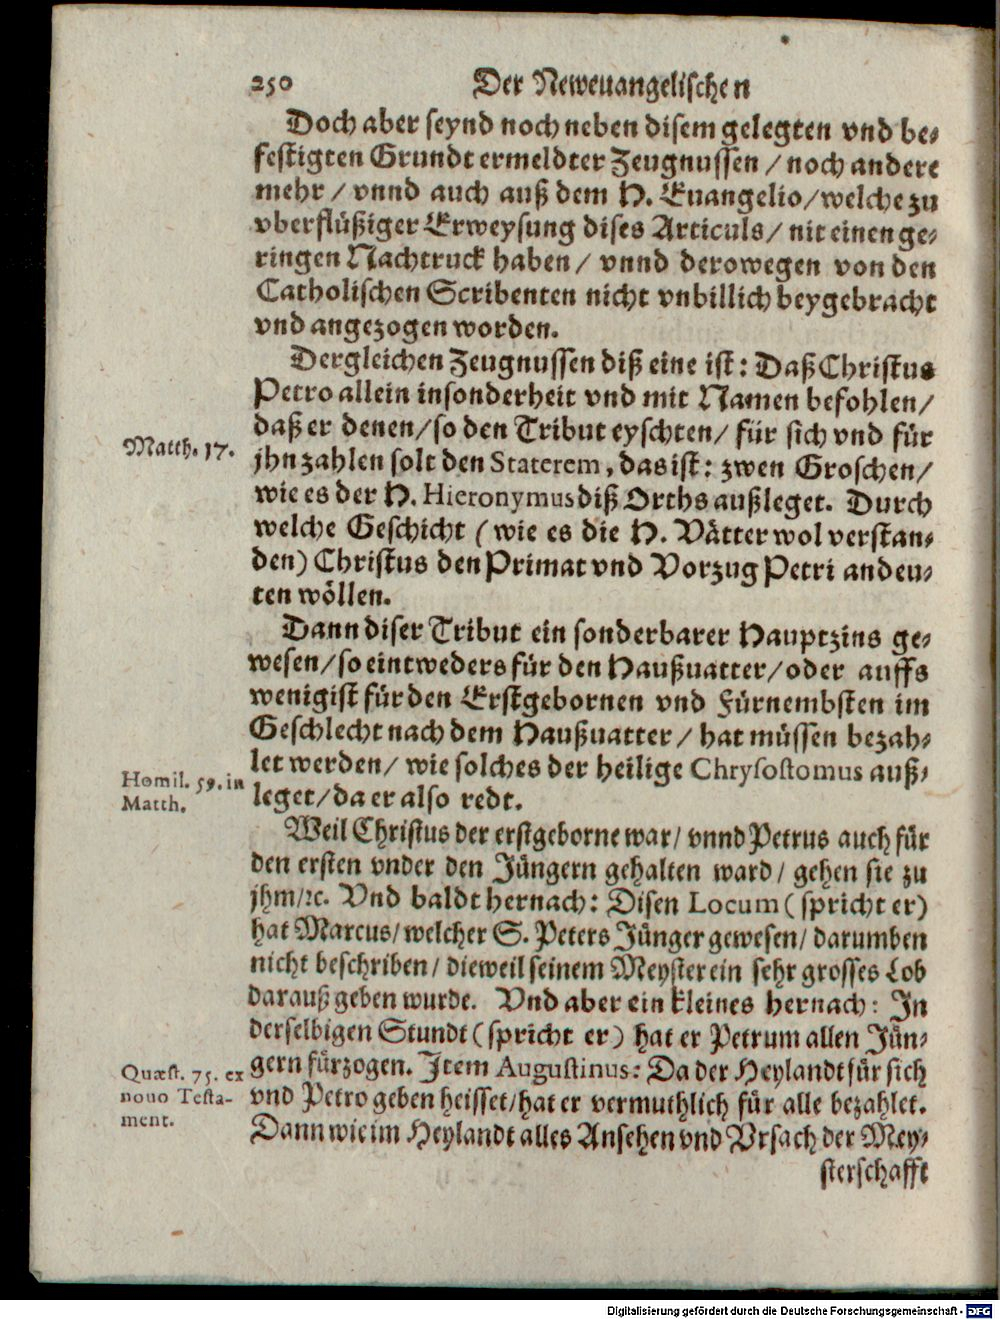 250 Der Neweuangelischen
Doch aber seynd noch neben disem gelegten vnd be-
festigten Grundt ermeldter Zeugnussen / noch andere
mehr / vnnd auch auß dem H. Euangelio/welche zu
vberflüßiger Erweysung dises Articuls/ nit einen ge-
ringen Nachtruck haben / vnnd derowegen von den
Catholischen Scribenten nicht vnbillich beygebracht
vnd angezogen worden.
Dergleichen Zeugnussen diß eine ist: Daß Christus
Petro allein insonderheit vnd mit Namen befohlen/
daß er denen/so den Tribut eyschten/ für sich vnd für
Matth. 17.
jhn zahlen solt den Staterem, das ist: zwen Groschen/
wie es der H. Hieronymus diß Orths außleget. Durch
welche Geschicht (wie es die H. Vätter wol verstan-
den) Christus den Primat vnd Vorzug Petri andeu-
ten wöllen.
Dann diser Tribut ein sonderbarer Hauptzins ge-
wesen/so eintweders für den Haußuatter/oder auffs
wenigist für den Erstgebornen vnd Fürnembsten im
Geschlecht nach dem Haußuatter / hat müssen bezah-
let werden/ wie solches der heilige Chrysostomus auß-
Homil. 59. in
Matth.
leget/da er also redt.
Weil Christus der erstgeborne war/ vnnd Petrus auch für
den ersten vnder den Jüngern gehalten ward/ gehen sie zu
jhm/ꝛc. Vnd baldt hernach: Disen Locum (spricht er)
hat Marcus/welcher S. Peters Jünger gewesen/ darumben
nicht beschriben/ dieweil seinem Meyster ein sehr grosses Lob
darauß geben wurde. Vnd aber ein kleines hernach: In
derselbigen Stundt (spricht er) hat er Petrum allen Jün-
gern fürzogen. Item Augustinus: Da der Heylandt für sich
Quæst. 75. ex
nouo Testa-
ment.
vnd Petro geben heisset/hat er vermuthlich für alle bezahlet.
Dann wie im Heylandt alles Ansehen vnd Vrsach der Mey-
sterschafft
Digitalisierung gefördert durch die Deutsche Forschungsgemeinschaft - DFG